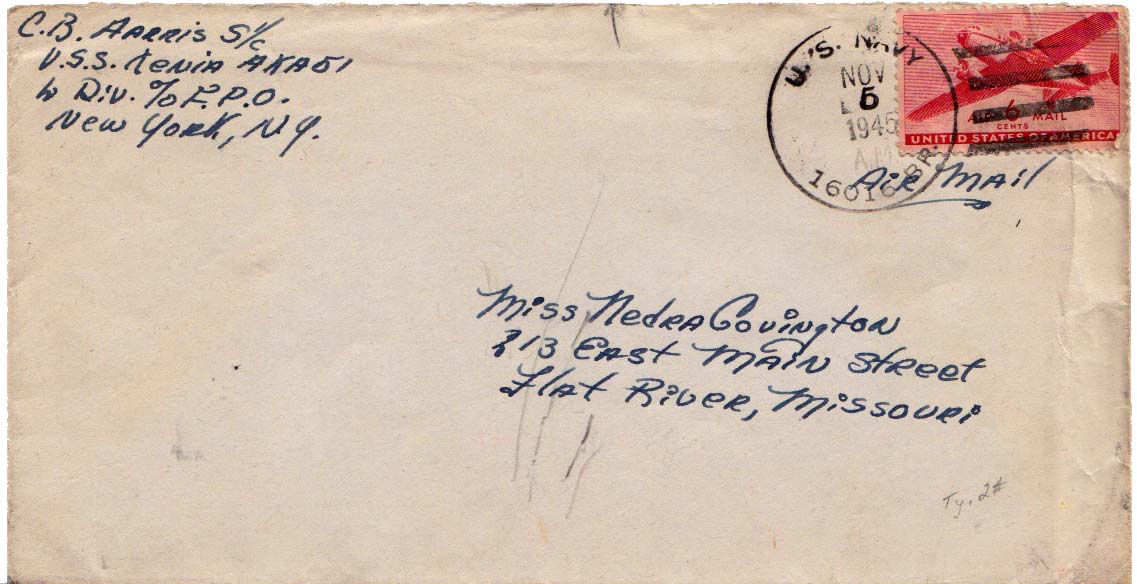 C.B. Harris S/c
U.S.S. Xenia AKA51
W Div. % F.P.O.
New York, N.Y.
U.S. NAVY
NOV
5
1945
A.M.
16016 BR.
AIR 6 MAIL
CENTS
UNITED STATES OF AMERICA
Air Mail
Miss Nedra Covington
313 East Main Street
Flat River, Missouri
Ty. 2#